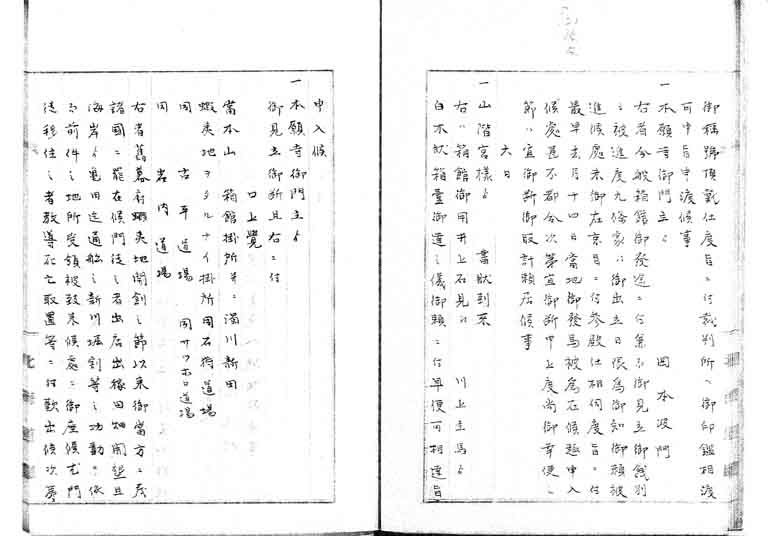 御稱號頂戴仕度旨ニ付裁判所へ御印鑑相渡
可申旨申渡候事
一本願寺御門主ゟ 岡本波門
右者今般箱館御發途ニ付御見立御餞別
被進度九條家ゟ御出立日限為御知御頼被
進候處未御在京旨ニ付参殿仕相伺度旨ニ付
最早去月十四日當地御發馬被為在候趣申入
候處甚不都合次第宜御断申上度尚御幸便
節ハ宜御断御取計頼居候事
六日
一山階宮様ゟ 書状到来
右ハ箱館御用井上石見ゟ 川上主馬ゟ
白木状箱壹御達之儀御頼ニ付早便可相達旨
申入候
一本願寺御門主ゟ
御見立御断且右ニ付
口上覺
當本山 箱館掛所并ニ濁川新田
蝦夷地ヲタルナイ掛所 同石狩道場
同 古平道場 同サッホロ道場
同 岩内道場
右者舊幕府蝦夷地開創之節以来御當方ニ茂
諸國ニ罷在候門徒之者出店出稼田畑開墾且
海岸ゟ亀田迄通船之新川堀割等之功勤ニ依
前件之地所受領被致来候處ニ御座候尤門
徒移住之者教導死亡取置等ニ付歎出候次第